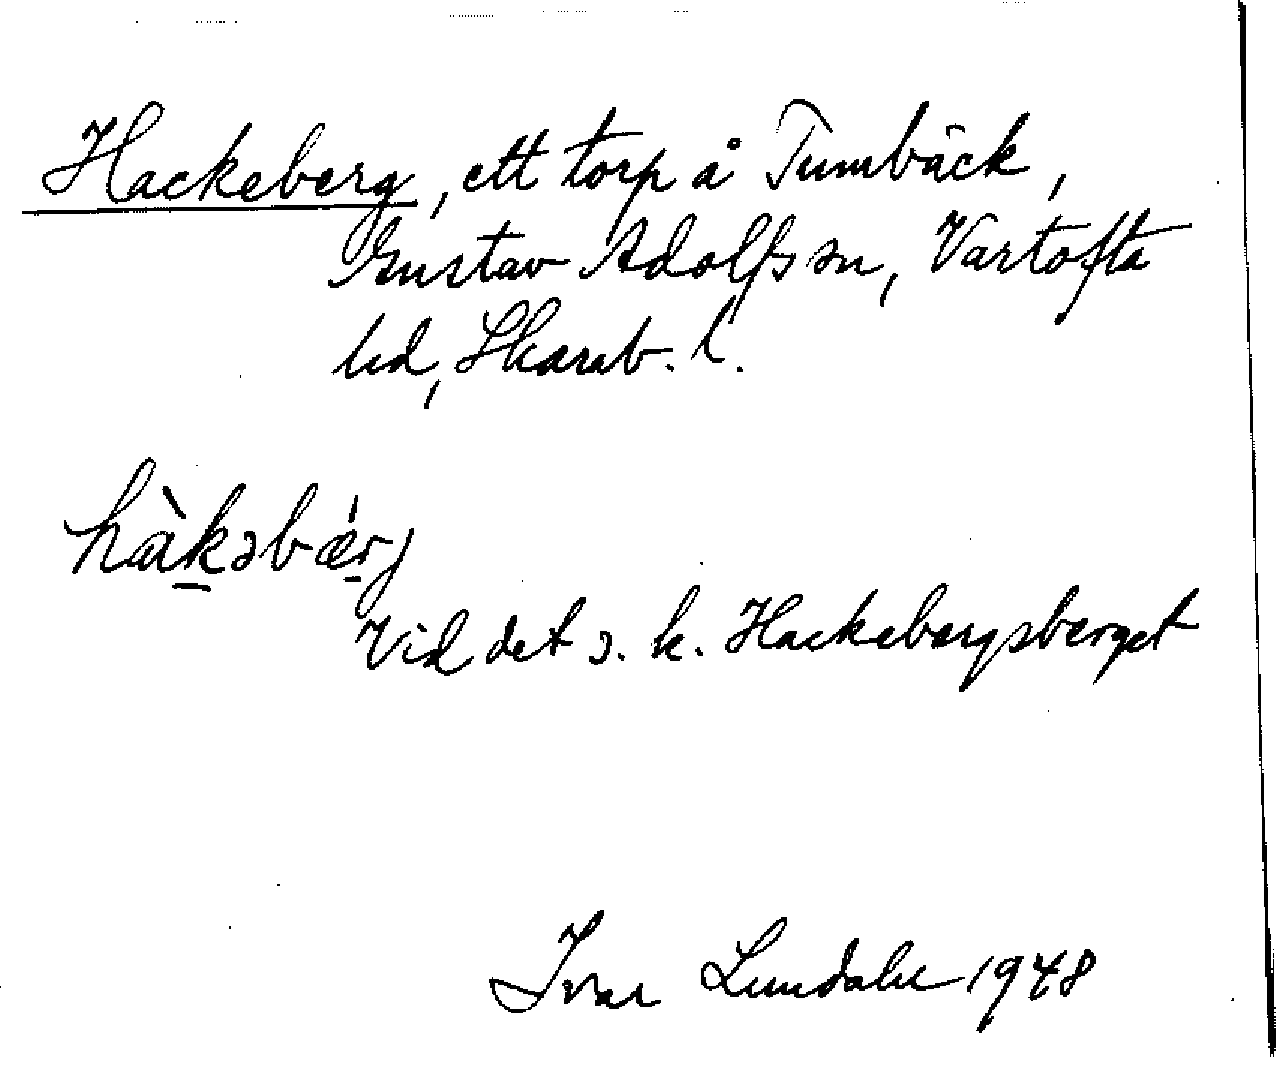 Hackeberg, ett torp å Tumbäck,
Gustav Adolfs sn, Vartofta
hd, Skarab. l.
hàkəbǽrj
Vid det s. k. Hackebergsberget
Ivar Lundahl 1948